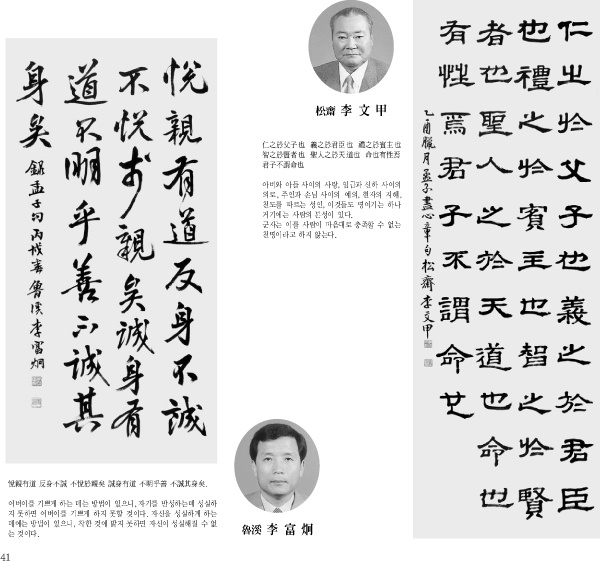 悅親有道反身不誠
不悅於親矣誠身有
道不明乎善不誠其
身矣
錄孟子句 丙戌春 魯溪 李富炯
悅親有道 反身不誠 不悅於親矣 誠身有道 不明乎善 不誠其身矣.
어버이를 기쁘게 하는 데는 방법이 있으니, 자기를 반성하는데 성실하
지 못하면 어버이를 기쁘게 하지 못할 것이다. 자신을 성실하게 하는
데에는 방법이 있으니, 착한 것에 밝지 못하면 자신이 성실해질 수 없
는 것이다.
松齋 李文甲
仁之於父子也 義之於君臣也 禮之於賓主也
智之於賢者也 聖人之於天道也 命也有性焉
君子不謂命也
아비와 아들 사이의 사랑, 임금과 신하 사이의
의로, 주인과 손님 사이의 예의, 현자의 지혜,
천도를 따르는 성인, 이것들도 명이기는 하나
거기에는 사람의 본성이 있다.
군자는 이를 사람이 마음대로 충족할 수 없는
천명이라고 하지 않는다.
仁之於父子也義之於君臣
也禮之於賓主也智之於賢
者也聖人之於天道也命也
有性焉君子不謂命也
乙酉臘月 孟子盡心章句 松齋 李文甲
魯溪 李富炯
41